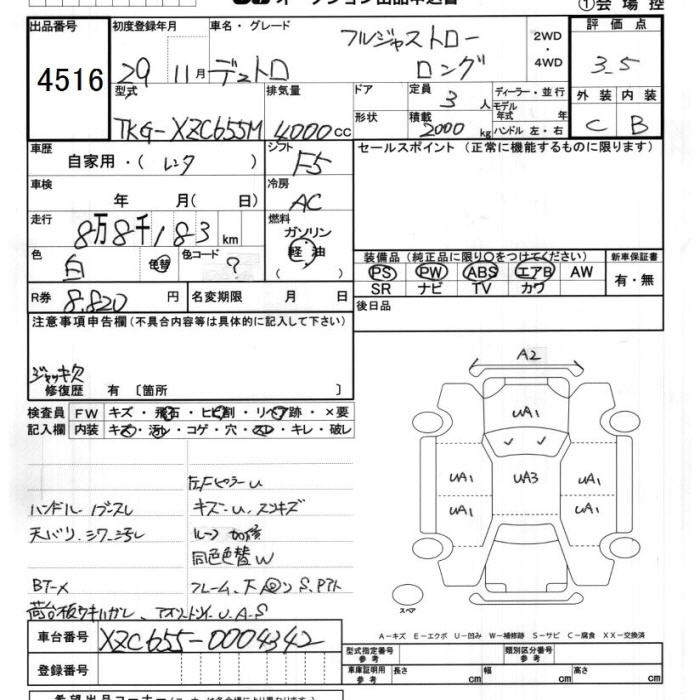 オークション出品申込書
①会場控
出品番号
4516
初度登録年月
29 11月
車名・グレード
デュトロ
フルジャストロー
ロング
2WD
・
4WD
評価点
3.5
型式
TKG-XZC655M
排気量
4000cc
ドア
形状
定員
3人
積載
2000kg
ディーラー・並行
モデル
年式 年
ハンドル 左・右
外装 内装
C B
車歴
自家用・(レンタ)
シフト
F5
セールスポイント (正常に機能するものに限ります)
車検
年 月( 日)
冷房
AC
走行
8万8千183km
燃料
ガソリン
軽油
( )
色
白
色替
色コード
?
装備品 (純正品に限り○をつけてください)
PS PW ABS エアB AW
SR ナビ TV カワ
新車保証書
有・無
R券
8,820円
名変期限 月 日
後日品
注意事項申告欄(不具合内容等は具体的に記入して下さい)
ジャッキ欠
修復歴 有〔箇所 〕
検査員
記入欄
FW キズ・飛石・ヒビ割・リペア跡・×要
内装 キズ・汚レ・コゲ・穴・スレ・キレ・破レ
左Fピラーu
ハンドル
キズ・u、スリキズ
天バリ、シワ、汚レ
ルーフ
同色色替W
BT-×
フレーム、下
荷台板ウキハガレ、
U.A.S
A2
UA1
UA1 UA3 UA1
UA1 UA1
スペア
A-キズ E-エクボ U-凹み W-補修跡 S-サビ C-腐食 XX-交換済
車台番号
XZC655-0004342
登録番号
型式指定番号
参考
類別区分番号
参考
車庫証明用
参考
長さ cm 幅 cm 高さ cm